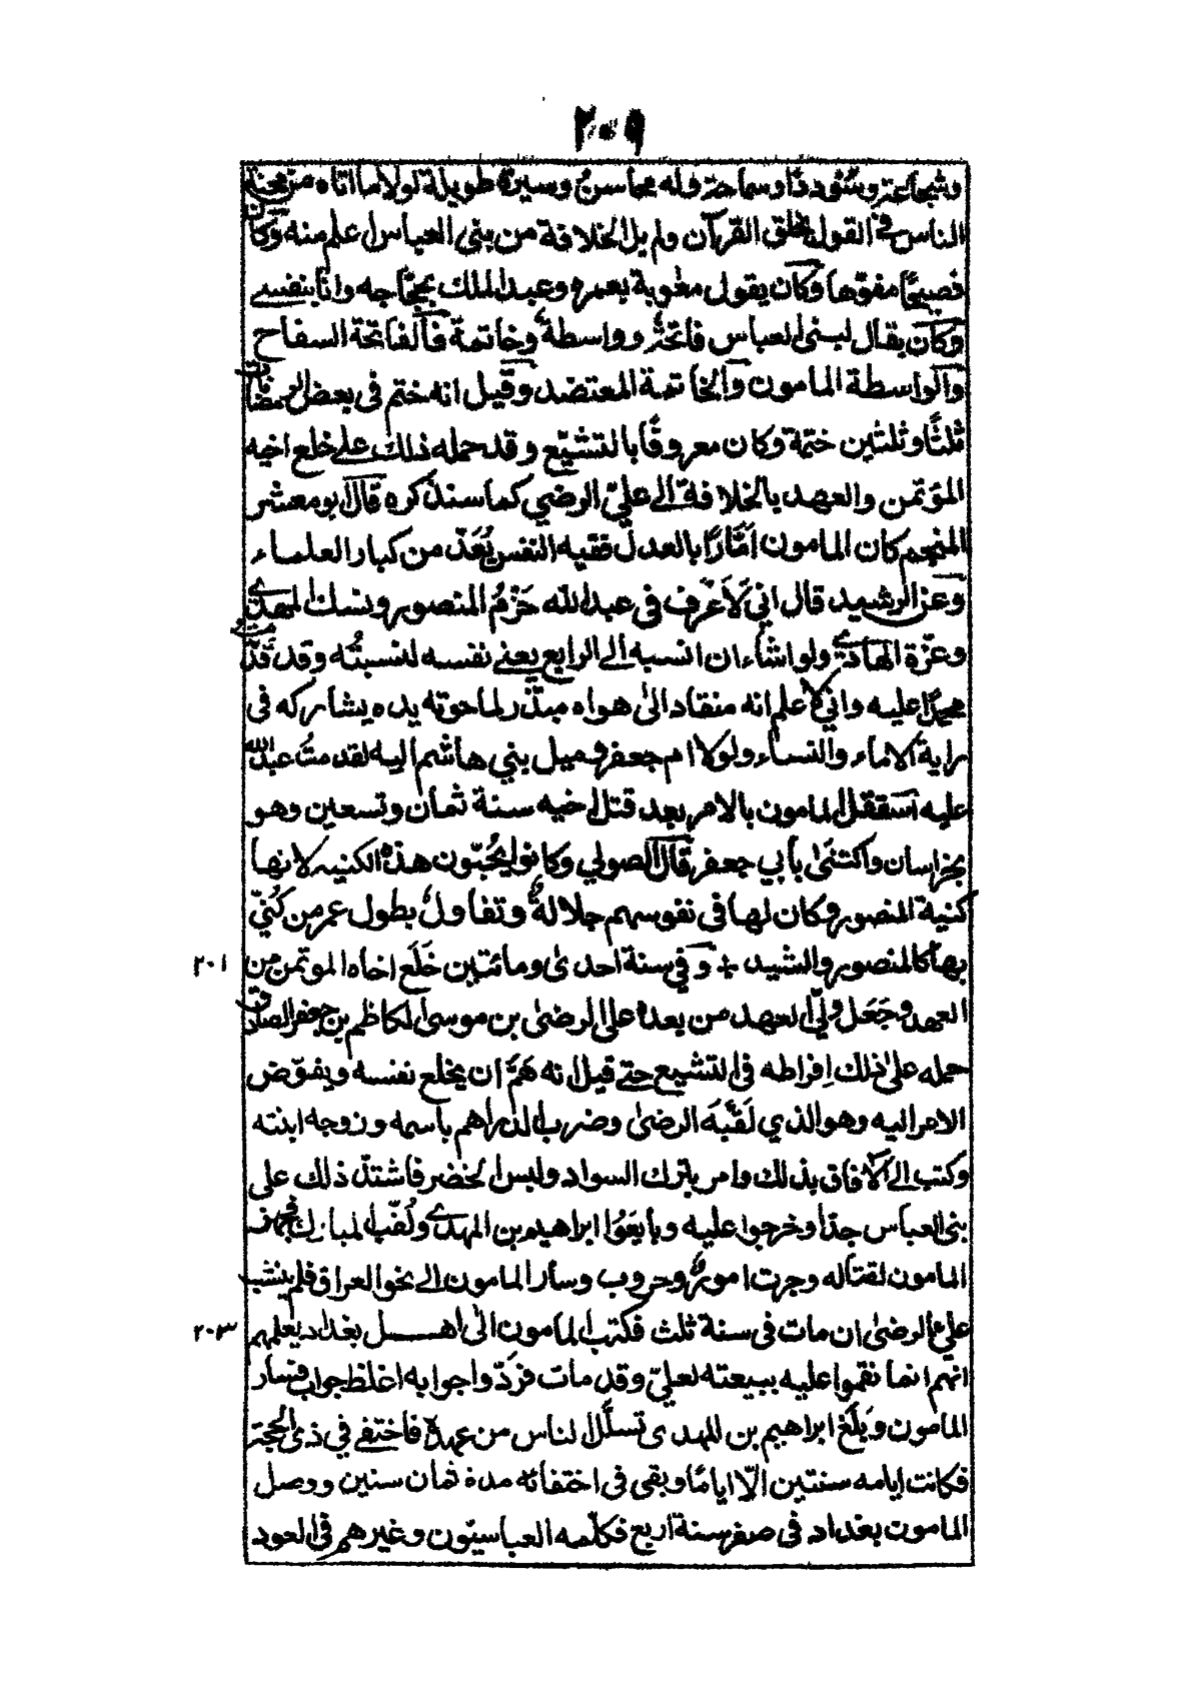 ٢٠٩
وشجاعة وسُوددًا وسماحة وله محاسنُ وسيرة طويلة لولا ما اتاه من محنة
الناس في القول بخلق القرآن ولم يل الخلافة من بني العباس اعلم منه وكان
فصيحًا مفوّها وكان يقول معٰوية بعمره وعبد الملك بحجّاجه وانا بنفسي
وكان يقال لبنى العباس فاتحةٌ وواسطةٌ وخاتمة فالفاتحة السفاح
والواسطة المامون والخاتمة المعتضد وقيل انه ختم فى بعض الرمضانات
ثلثًا وثلثين ختمة وكان معروفًا بالتشيّع وقد حمله ذلك على خلع اخيه
المؤتمن والعهد بالخلافة الى عليّ الرضي كما سنذكره قال ابو معشر
المنجم كان المامون اَمّارًا بالعدل فقيه النفس يُعَدّ من كبار العلماء
وعن الرشيد قال اني لَاَعْرف فى عبد الله حَزْمَ المنصور ونسك المهدي
وعزّة الهادي ولو اشاء ان انسبه الى الرابع يعني نفسه لنسبتُه وقد قدّمت
محمدًا عليه واني لاعلم انه منقاد الىٰ هواه مبذّر لما حوته يده يشاركه فى
رايه الاماء والنساء ولولا ام جعفر وميل بني هاشم اليه لقدمتُ عبد الله
عليه استقل المامون بالامر بعد قتل اخيه سنة ثمان وتسعين وهو
بخراسان واكتنىٰ بأبي جعفر قال الصولي وكانوا يحُبّون هذه الكنيه لانها
كنية المنصور وكان لها فى نفوسهم جلالةٌ وتفاولٌ بطول عمر من كُنّي
بها كالمنصور والرشيد + وفي سنة احدى ومائتين خَلَع اخاه الموتمن من
٢٠١
العهد وجَعَل وليّ العهد من بعده على الرضىٰ بن موسىٰ الكاظم بن جعفر الصادق
حمله علىٰ ذلك اِفراطه فى التشيع حتے قيل انه هَمَّ ان يخلع نفسه ويفوّض
الامر اليه وهو الذي لَقّبَه الرضىٰ وضرب الدراهم باسمه وزوجه ابنته
وكتب الى الآفاق بذلك وامر بترك السواد ولبس الخضر فاشتدّ ذلك على
بنى العباس جدًا وخرجوا عليه وبايعَوُا ابراهيم بن المهدي ولُقّب المبارك فجهز
المامون لقتاله وجرت امورٌ وحروب وسار المامون الى نحو العراق فلم ينشب
عليُّ الرضىٰ ان مات فى سنة ثلث فكتب المامون الىٰ اهل بغداد يعلمهم
٢٠٣
انهم انما نقموا عليه ببيعته لعليّ وقد مات فردّوا جوابه اغلظ جواب فسار
المامون وبَلَغ ابراهيم بن المهدى تسلّل الناس من عهده فاختفى في ذى الحجة
فكانت ايامه سنتين الّا ايامًا وبقى فى اختفائه مدة ثمان سنين ووصل
المامون بغداد فى صفر سنة اربع فكلّمه العباسيّون وغيرهم فى العود